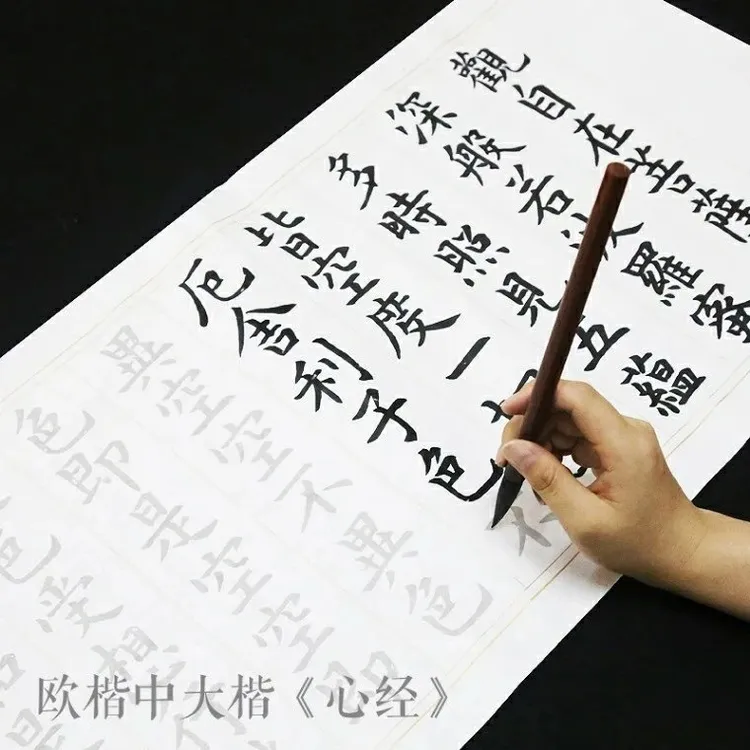 觀自在菩薩
深般若波羅蜜
多時照見五蘊
皆空度一
厄舍利子色不
異空空不異色
色即是空空即
色受想行
欧楷中大楷《心经》